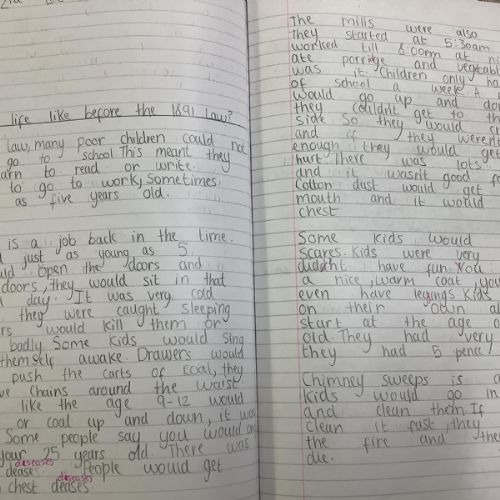 life like before the 1891 law?
law, many poor children could not
go to school. This meant they
arn to read or write.
to go to work, Sometimes
as five years old.
is a job back in the time.
just as young as 5.
uld open the doors and
doors, they would sit in that
day. It was very cold
they were caught sleeping
rs would kill them or
badly. Some kids would sing
themself awake. Drawers would
push the carts of coal, they
ve chains around the waist.
like the age 9-12 would
or coal up and down, it was
Some people say you would on
your 25 years old. There was
deseases
dease. People would get
deseases
chest deases.
The mills were also
They started at 5:30am
worked till 8:00pm at ni
ate porridge and vegetabl
was it. Children only ha
of school a week. A l
would go up and do
they couldn't get to th
side so they would
and if they weren't
enough they would ge
hurt. There was lots
and it wasn't good fo
Cotton dust would get
mouth and it would
chest
Some kids would
scares. Kids were very
have fun. You
a nice, warm coat, you
even have Kids
on their own al
start at the age
old. They had very
they had 5 pence
Chimney sweeps is a
kids would go in
and clean them. If
clean it fast, they
the fire and the
die.